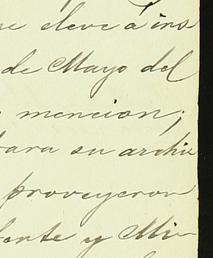 se eleve á ins
de Mayo del
mencion;
para su archi
proveyeron
dente y Mi-